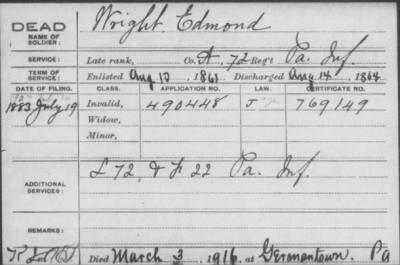 DEAD
NAME OF SOLDIER: Wright, Edmond
SERVICE: Late rank, Co. A, 72 Reg't Pa. Inf.
TERM OF SERVICE: Enlisted Aug 10, 1861 Discharged Aug 14, 1864
DATE OF FILING. CLASS. APPLICATION NO. LAW. CERTIFICATE NO.
1883 July 19 Invalid, 490448 J 769149
Widow,
Minor,
ADDITIONAL SERVICES: L 72, & F 22 Pa. Inf.
REMARKS:
Died March 3, 1916, at Germantown, Pa